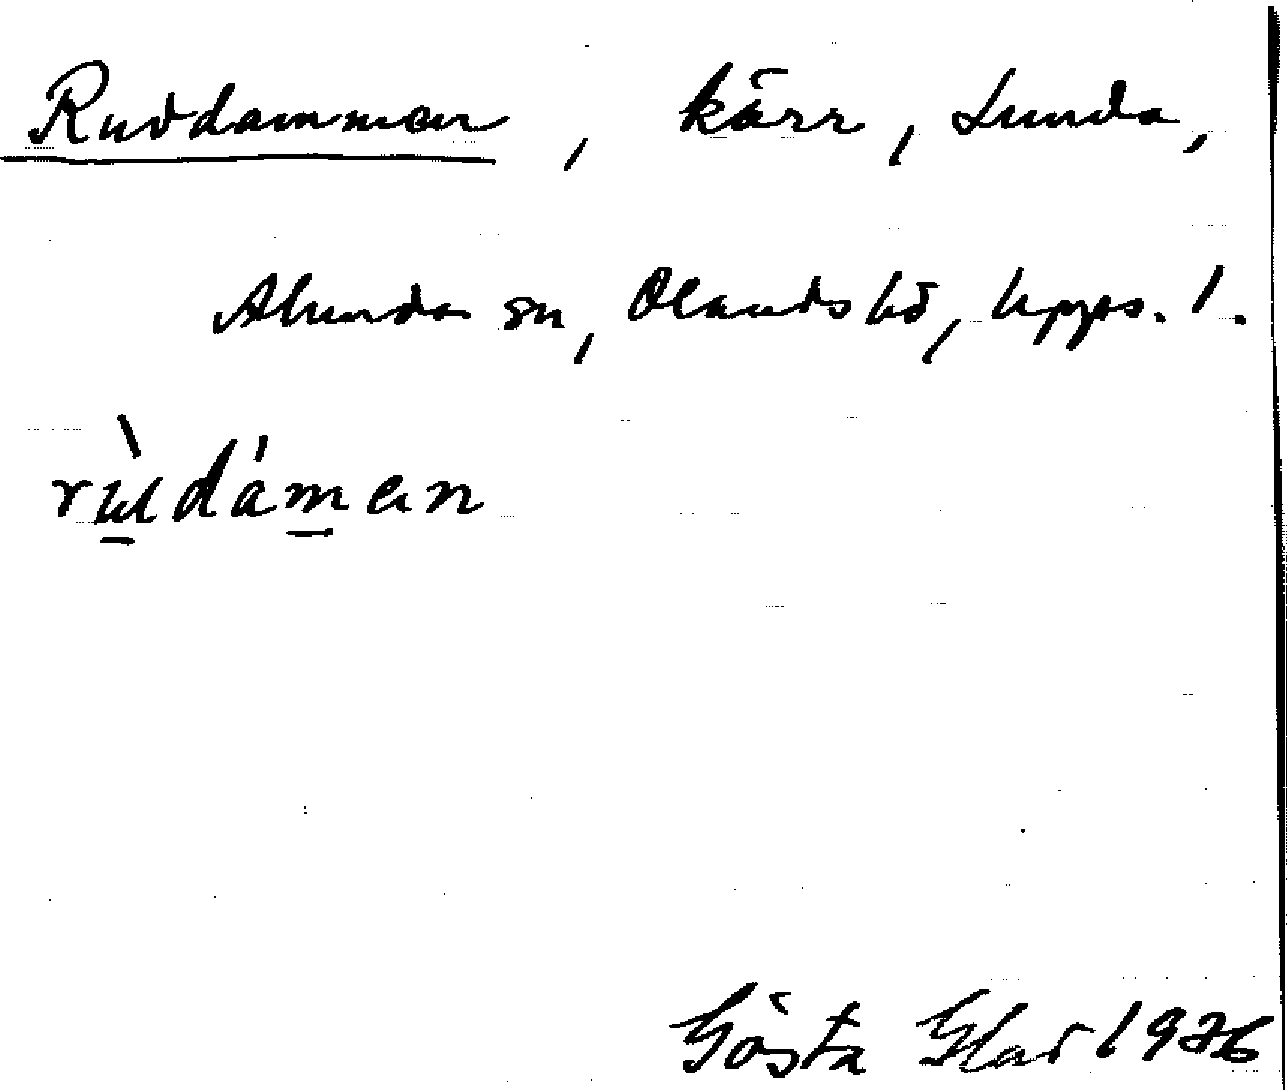 Ruddammen, kärr, Lunda,
Alunda sn, Olands hd, Upps. l.
rùdámen
Gösta 1976